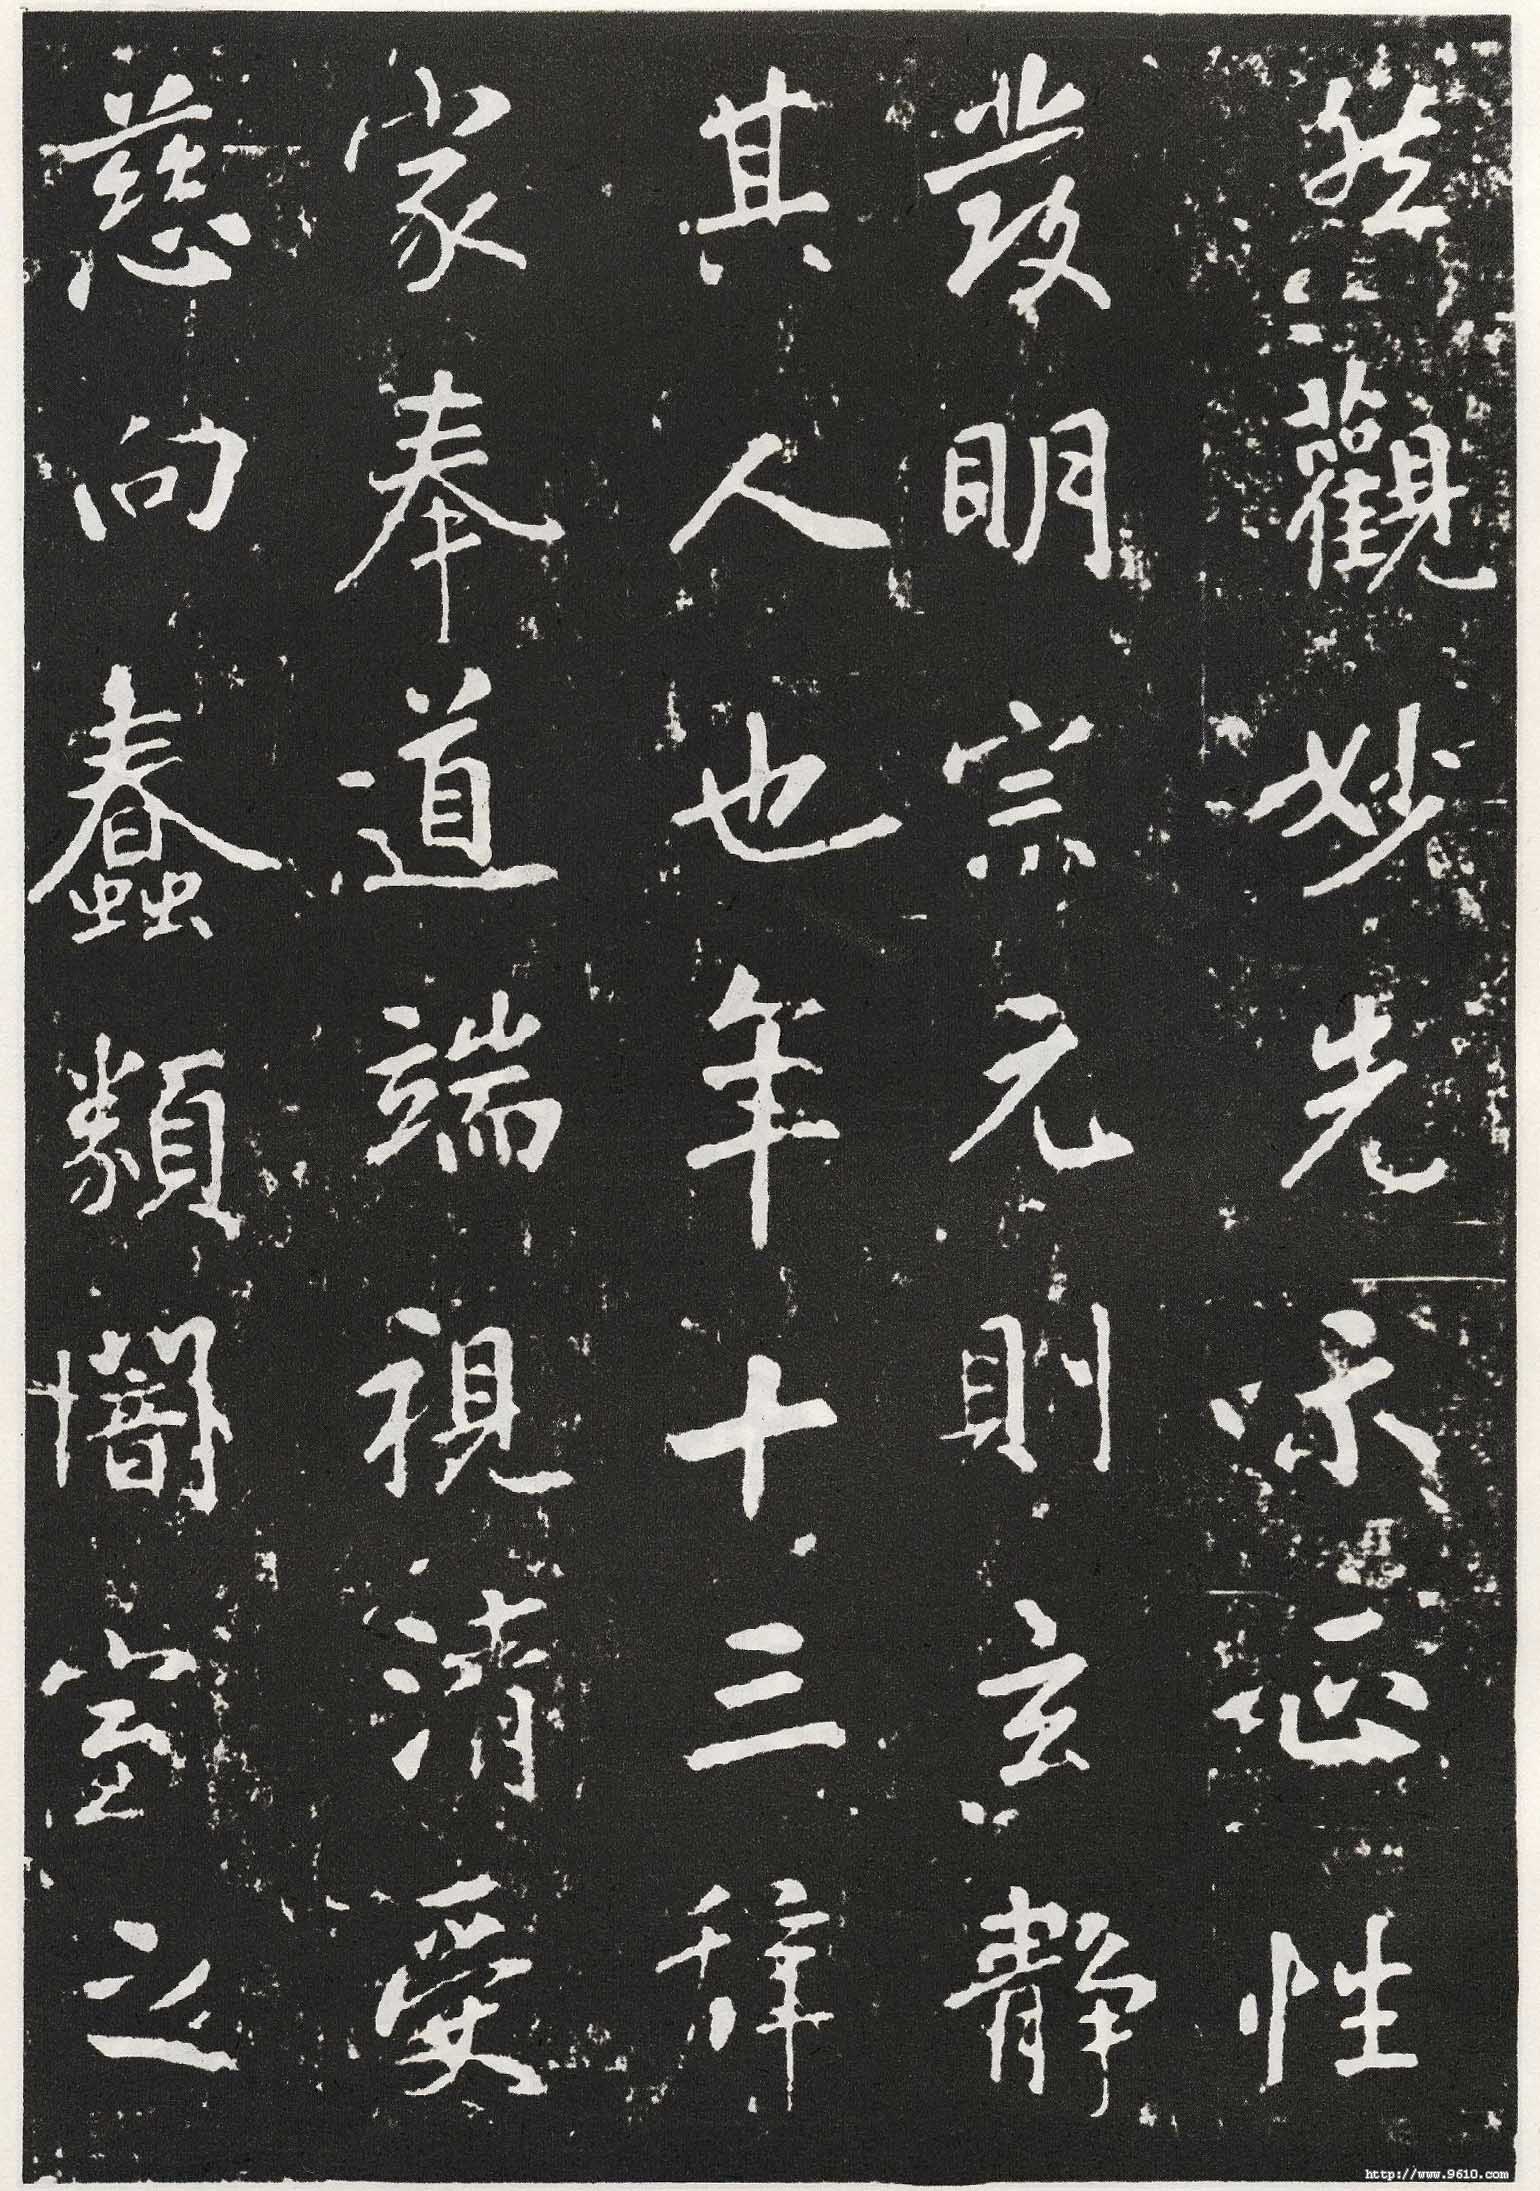 然觀妙先示正性
發明宗元則玄靜
其人也年十三辭
家奉道端視清受
慈向蠢類闇室之
http://www.9610.com